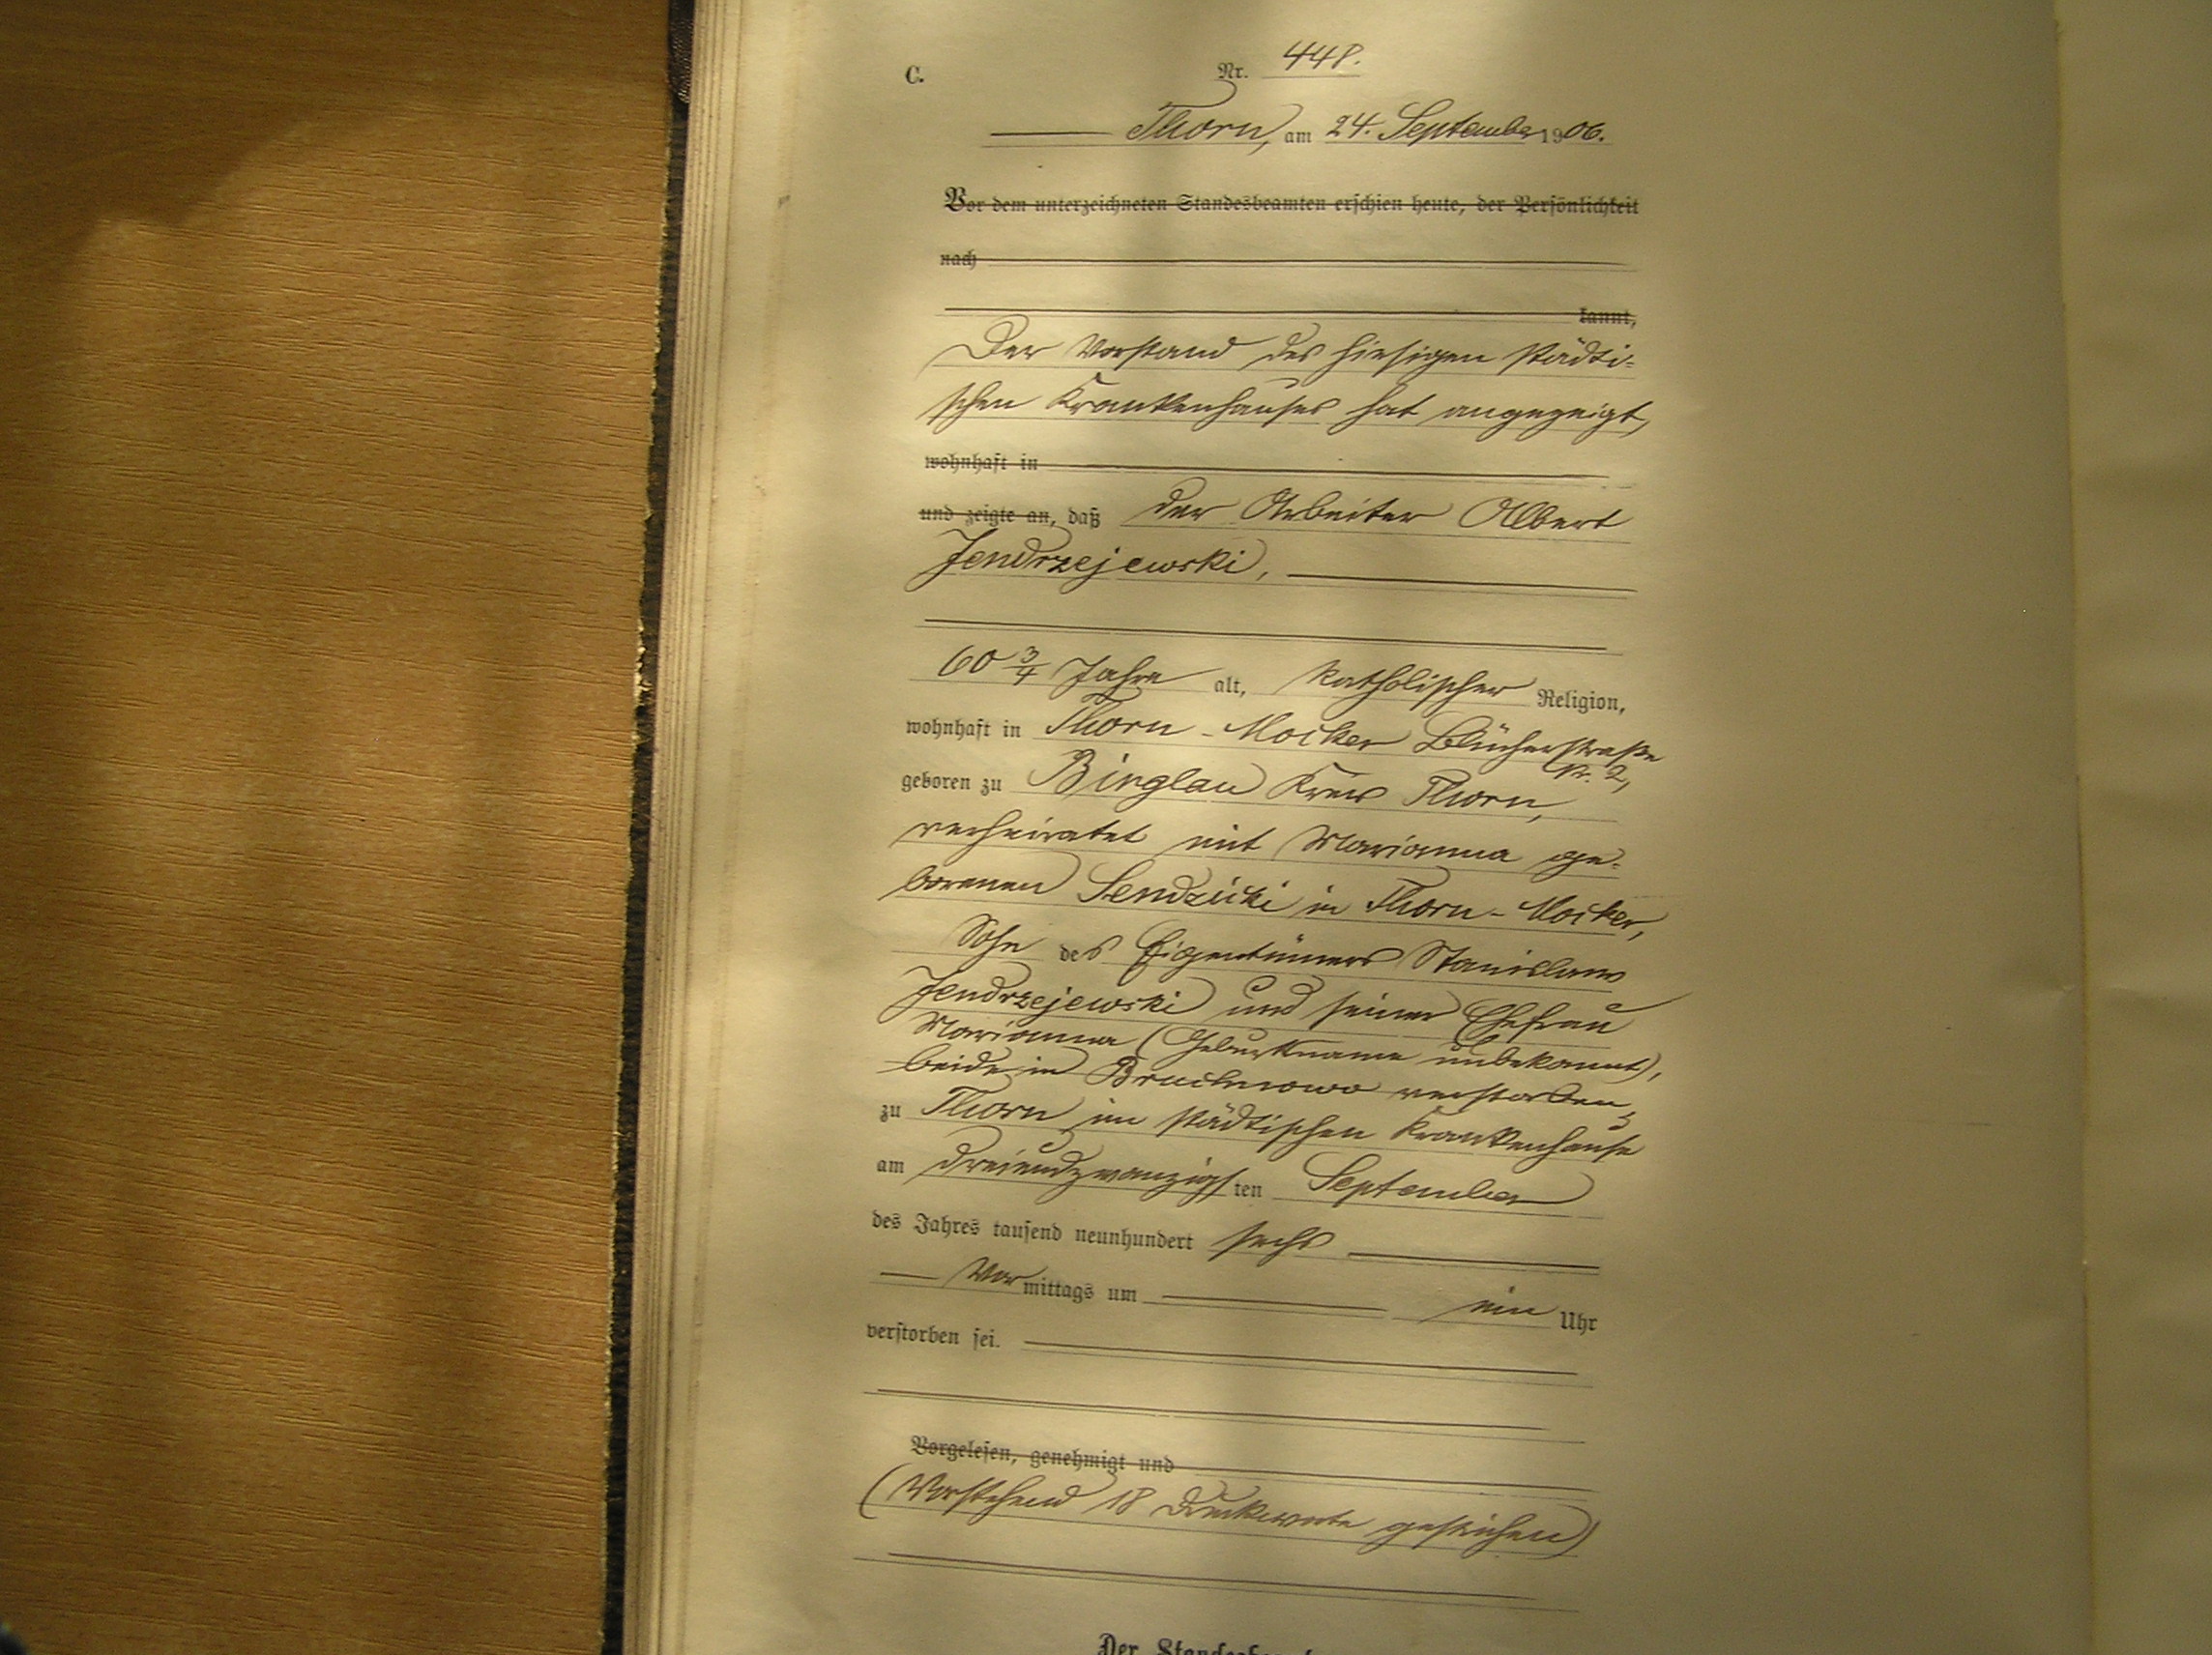 C. Nr. 448.
Thorn, am 24. September 1906.
Vor dem unterzeichneten Standesbeamten erschien heute, der Persönlichkeit
nach
kannt,
Der Vorstand des hiesigen städti-
schen Krankenhauses hat angezeigt,
wohnhaft in
und zeigte an, daß der Arbeiter Albert
Jendrzejewski,
60 3/4 Jahre alt, katholischer Religion,
wohnhaft in Thorn-Mocker Blücherstraße
Nr. 2,
geboren zu Birglau Kreis Thorn,
verheiratet mit Marianna ge-
borenen Sendzicki in Thorn-Mocker,
Sohn des Eigentümers Stanislaus
Jendrzejewski und seiner Ehefrau
Marianna (Geburtsname unbekannt),
beide in Bruchnowo verstorben,
zu Thorn im städtischen Krankenhause
am dreiundzwanzigsten September
des Jahres tausend neunhundert sechs
Vormittags um ein Uhr
verstorben sei.
Vorgelesen, genehmigt und
(Vorstehend 18 Druckworte gestrichen)
Der